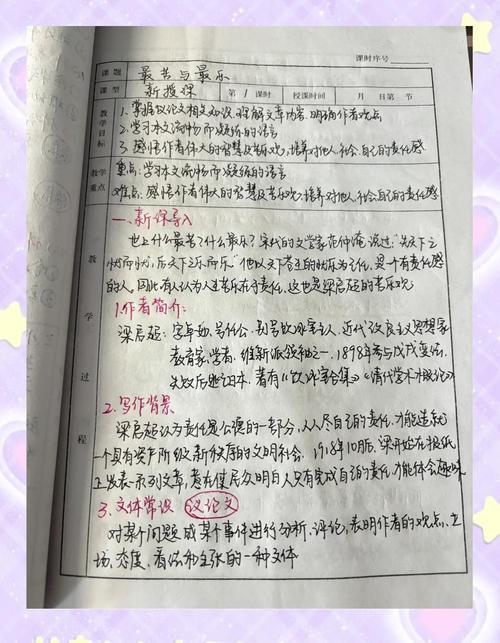 课时序号
课题 最苦与最乐
课型 新授课 第1课时 授课时间 月 日第 节
教学目标
1. 掌握议论文相关知识,理解文章内容,明确作者观点
2. 学习本文流畅而凝练的语言
3. 感悟作者伟大的智慧及苦乐观,培养对他人、社会、自己的责任感
教学重点
重点:学习本文流畅而凝练的语言
难点:感悟作者伟大的智慧及苦乐观,培养对他人、社会、自己的责任感
教学过程
一、新课导入
世上什么最苦?什么最乐?宋代的文学家范仲淹说过"先天下之
忧而忧,后天下之乐而乐"他以天下苍生的快乐为己任,是个有责任感
的人。因此,有人认为人生苦乐在于责任,这也是梁启超的苦乐观
1. 作者简介:
梁启超:字卓如,号任公,别号饮冰室主人,近代改良主义思想家
教育家,学者,维新派领袖之一,1898年参与戊戌变法,
失败后逃亡日本,著有《饮冰室合集》《清代学术概论》
2. 写作背景
梁启超认为责任是公德的一部分,人人尽自己的责任,才能造就
一个具有资产阶级新秩序的文明社会,1918年10月后,梁开始在报纸
上发表一系列文章,意在使民众明白人只有完成自己的责任,才能体会
3. 文体常识 议论文
对某个问题或某个事件进行分析、评论,表明作者的观点、立
场、态度、看法和主张的一种文体